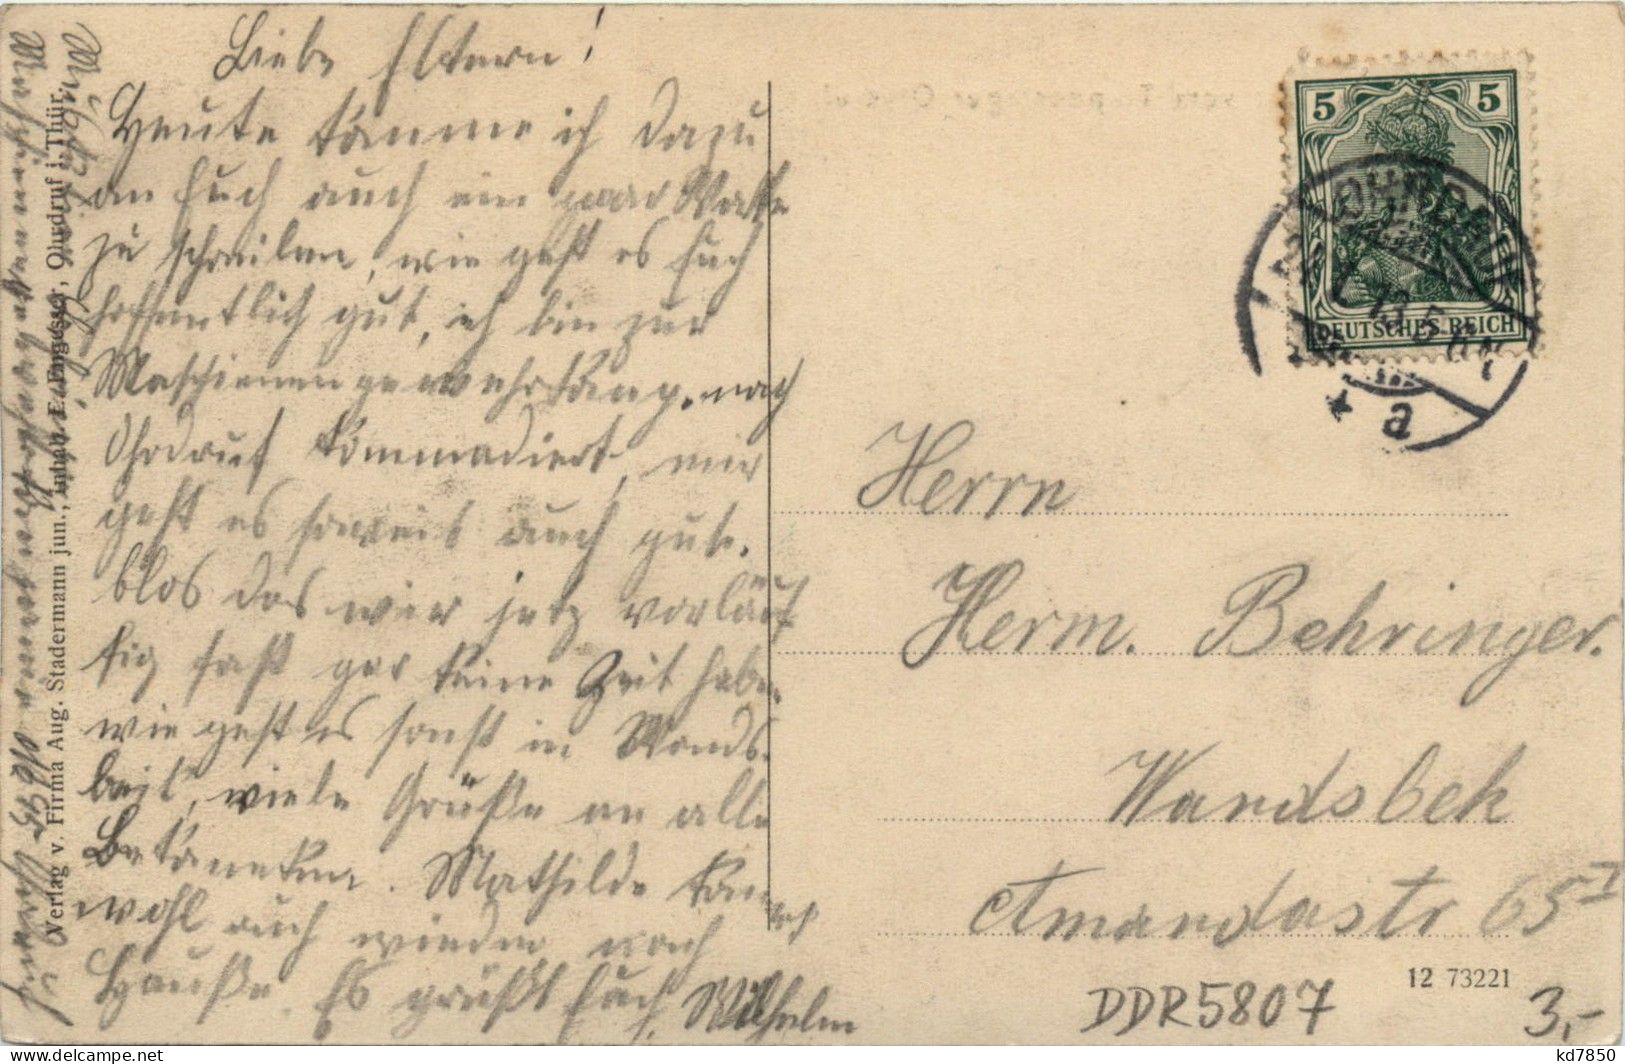 Liebe Eltern!
Heute komme ich dazu
an Euch auch ein paar Worte
zu schreiben, wie geht es Euch
hoffentlich gut, ich bin zur
Maschienengewehrkomp. nach
Ohrdruf kommadiert, mir
geht es soweit auch gut.
blos das wir jetz vorläuf
fig fast gar keine Zeit haben
wie geht es sonst in Wands-
bek, viele Grüße an alle
Bekannten. Mathilde kommt
wohl auch wieder nach
Hauße. Es grüßt Euch Wilhelm
Verlag v. Firma Aug. Stadermann jun., Inhab. E. Engesser, Ohrdruf i. Thür.
5 5
DEUTSCHES REICH
OHRDRUF
* a
Herrn
Herm. Behringer.
Wandsbek
Amandastr 65 I
12 73221
DDR5807
3,-
delcampe.net
kd7850